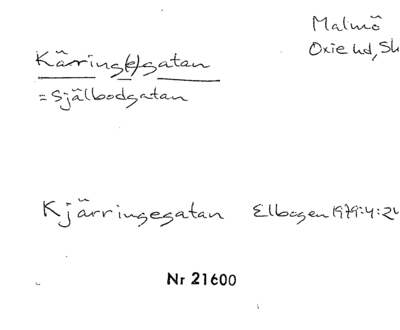 Malmö
Oxie hd, Sk
Käring(e)gatan
= Själbodgatan
Kjärringegatan Elbogen 1979:4:24
Nr 21600